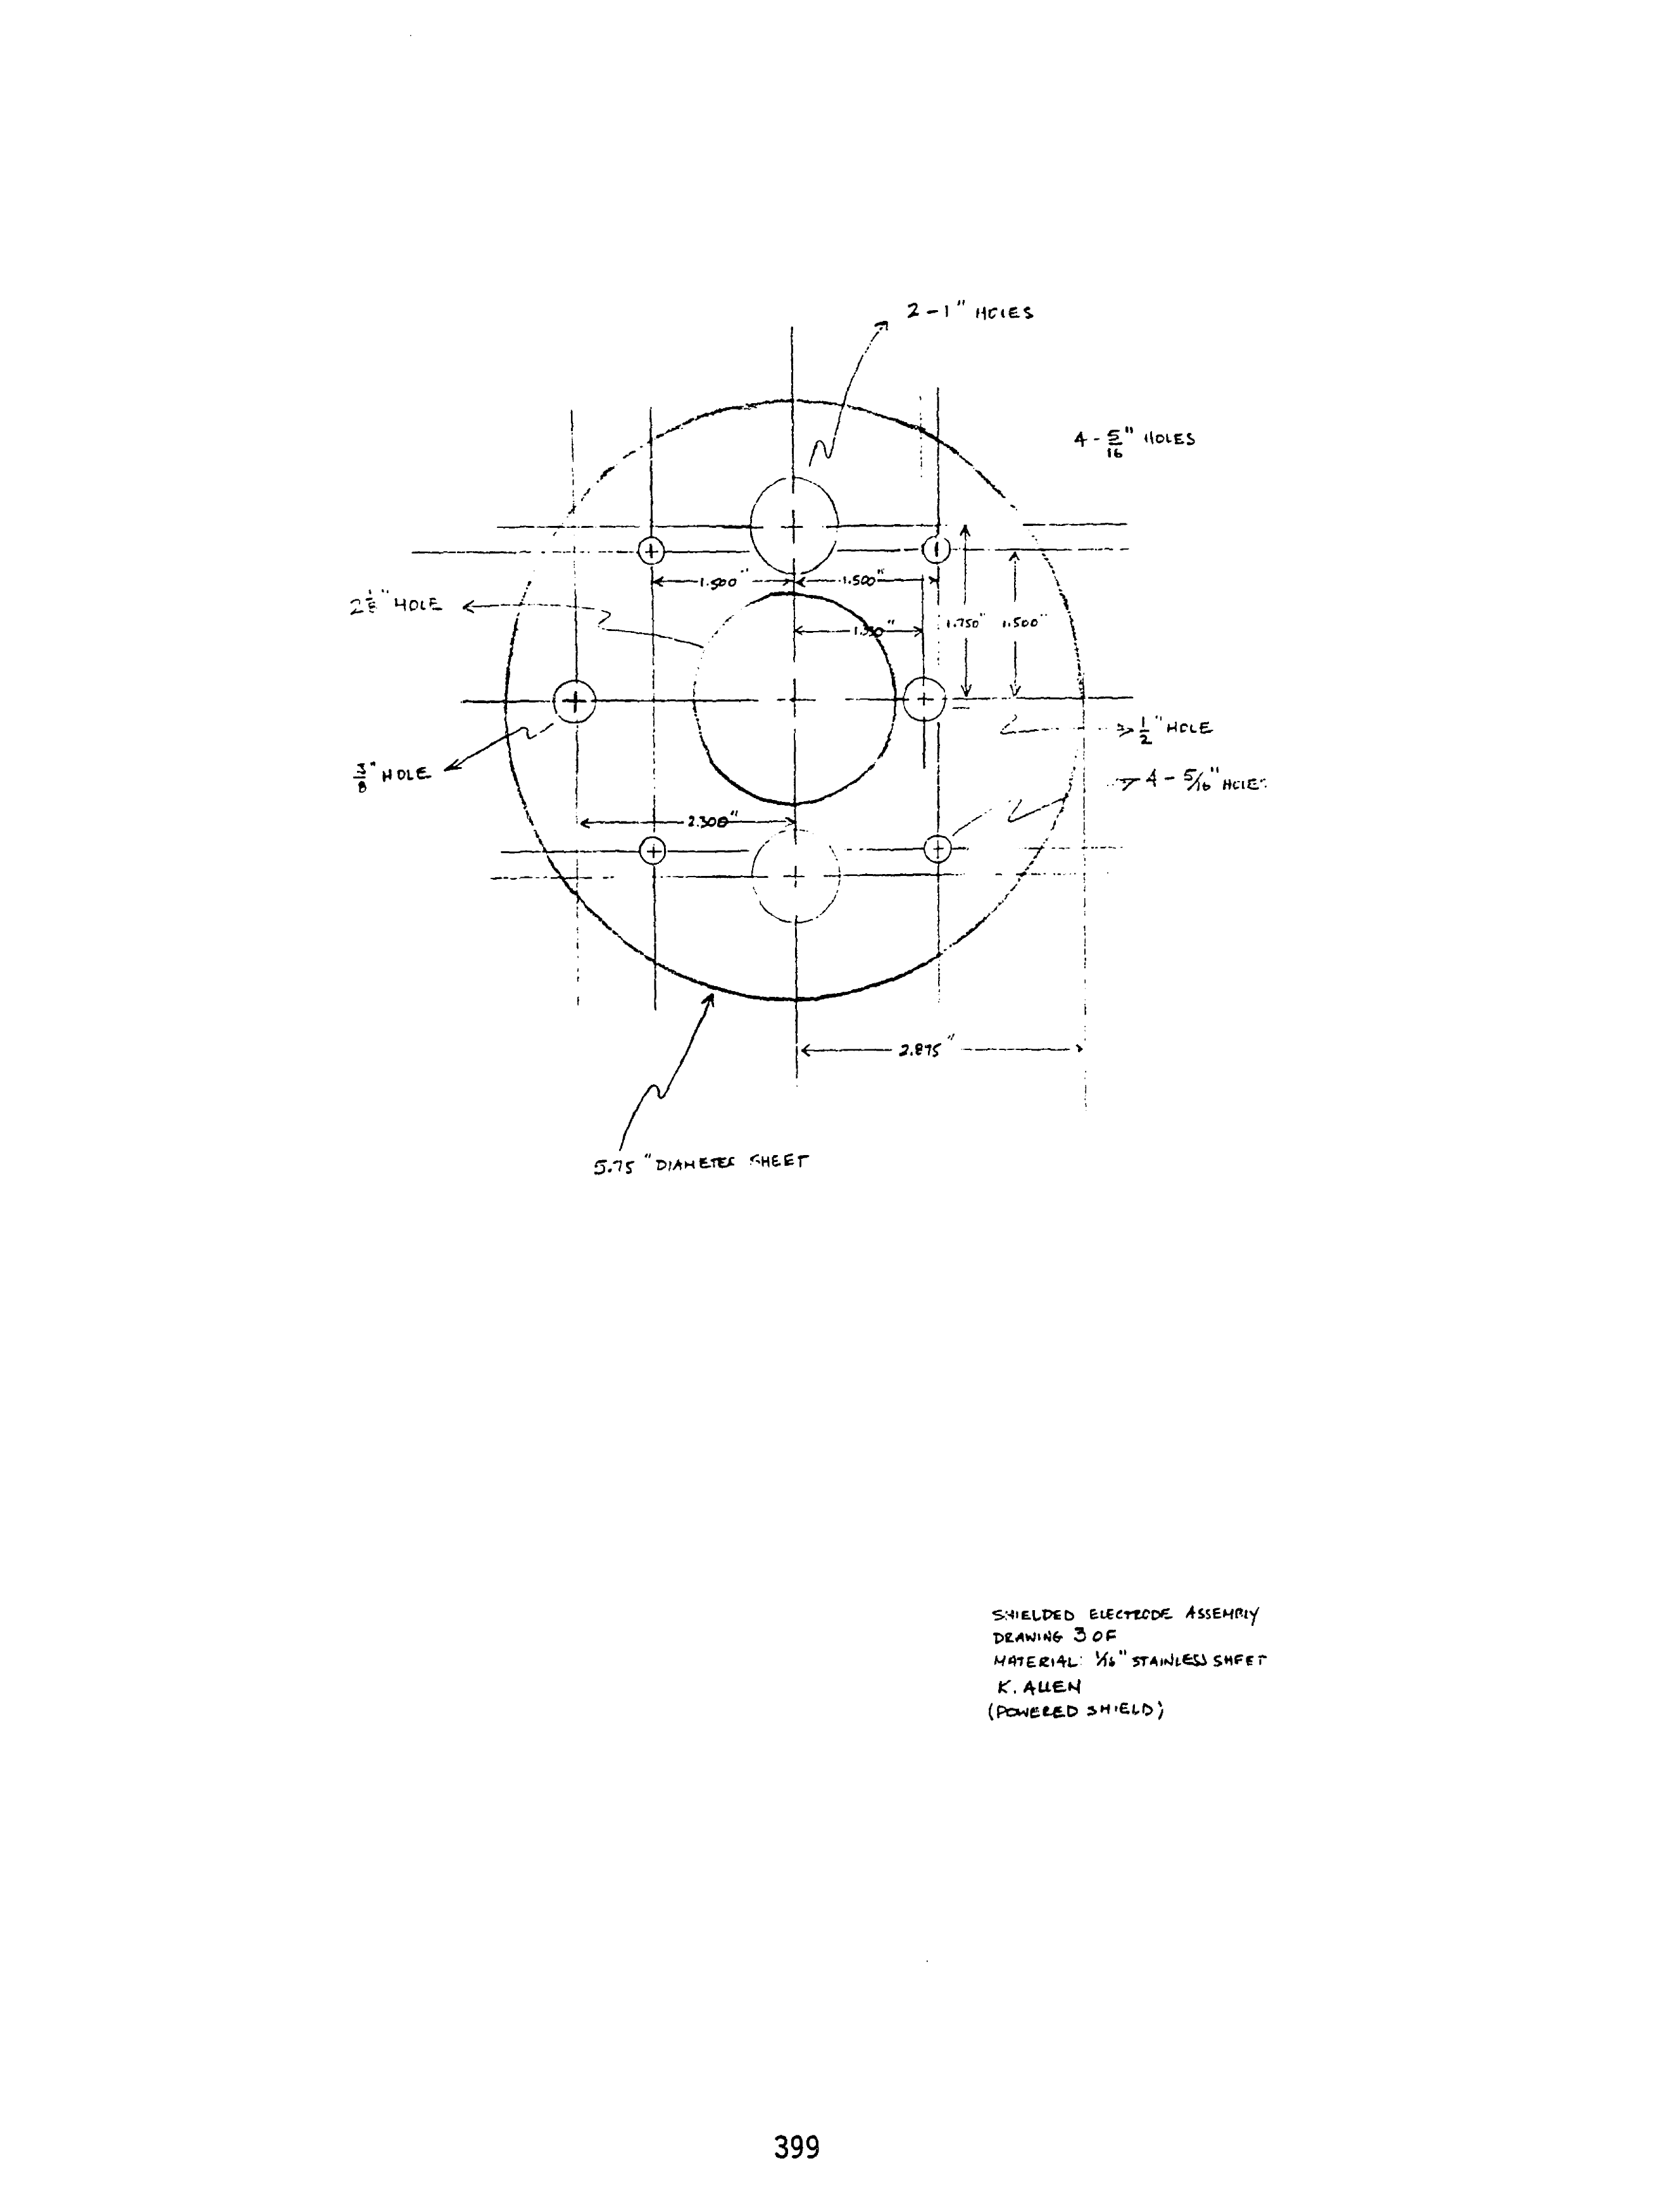 2-1" HOLES
4-5/16" HOLES
1.500" 1.500"
2 1/8" HOLE
1.750" 1.500"
1/2" HOLE
3/8" HOLE
4-5/16" HOLES
2.300"
2.875"
5.75" DIAMETER SHEET
SHIELDED ELECTRODE ASSEMBLY
DRAWING 3 OF
MATERIAL: 1/16" STAINLESS SHEET
K. ALLEN
(POWERED SHIELD)
399